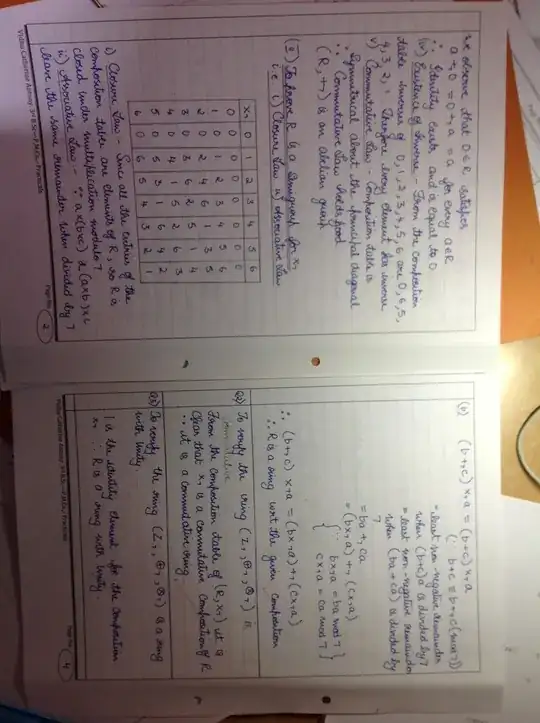 we observe that 0 ∈ R, satisfies
a +₇ 0 = 0 +₇ a = a for every a ∈ R
∴ Identity exists and is equal to 0
(iv) Existence of Inverse - From the composition
table inverse of 0,1,2,3,4,5,6 are 0,6,5,
4,3,2,1. Therefore every element has inverse
v) Commutative Law - Composition table is
symmetrical about the principal diagonal
∴ Commutative Law holds good
(R, +₇) is an abelian group
(ii) To prove R is a Semigroup for x₇
i.e i) Closure Law ii) Associative Law
x₇ 0 1 2 3 4 5 6
0 0 0 0 0 0 0 0
1 0 1 2 3 4 5 6
2 0 2 4 6 1 3 5
3 0 3 6 2 5 1 4
4 0 4 1 5 2 6 3
5 0 5 3 1 6 4 2
6 0 6 5 4 3 2 1
i) Closure Law - Since all the entries of the
composition table are elements of R, so R is
closed under multiplication modulo 7
ii) Associative Law - ∵ a x (bxc) & (axb) xc
leave the same remainder when divided by 7
Page No. 2
(b) (b +₇ c) x₇ a = (b+c) x₇ a
{∵ b+c ≡ b +₇ c (mod 7)}
= least non-negative remainder
when (b+c)a is divided by 7
= least non-negative remainder
when (ba + ca) is divided by
7
= ba +₇ ca
= (b x₇ a) +₇ (c x₇ a)
{∵ b x₇ a = ba mod 7
c x₇ a = ca mod 7}
∴ (b +₇ c) x₇ a = (b x₇ a) +₇ (c x₇ a)
∴ R is a ring wrt the given composition
To verify the ring (Z₇, ⊕₇, ⊙₇) is
commutative
From the composition table of (R, x₇) it is
clear that x₇ is a commutative composition of R
∴ it is a commutative ring.
To verify the ring (Z₇, ⊕₇, ⊙₇) is a ring
with unity.
1 is the identity element for the composition
x₇ ∴ R is a ring with unity
Page No. 4